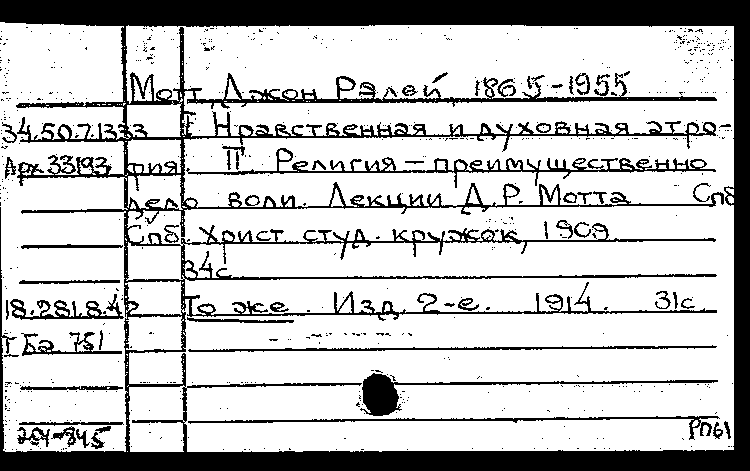 Мотт, Джон Рэлей, 1865-1955
34.50.7.1333 I Нравственная и духовная атро-
Арх 33193 фия. II Религия – преимущественно
дело воли. Лекции Д.Р. Мотта Спб
Спб. Христ. студ. кружок, 1909
34с
18.281.8.42 То же. Изд. 2-е. 1914. 31с.
751
РП61